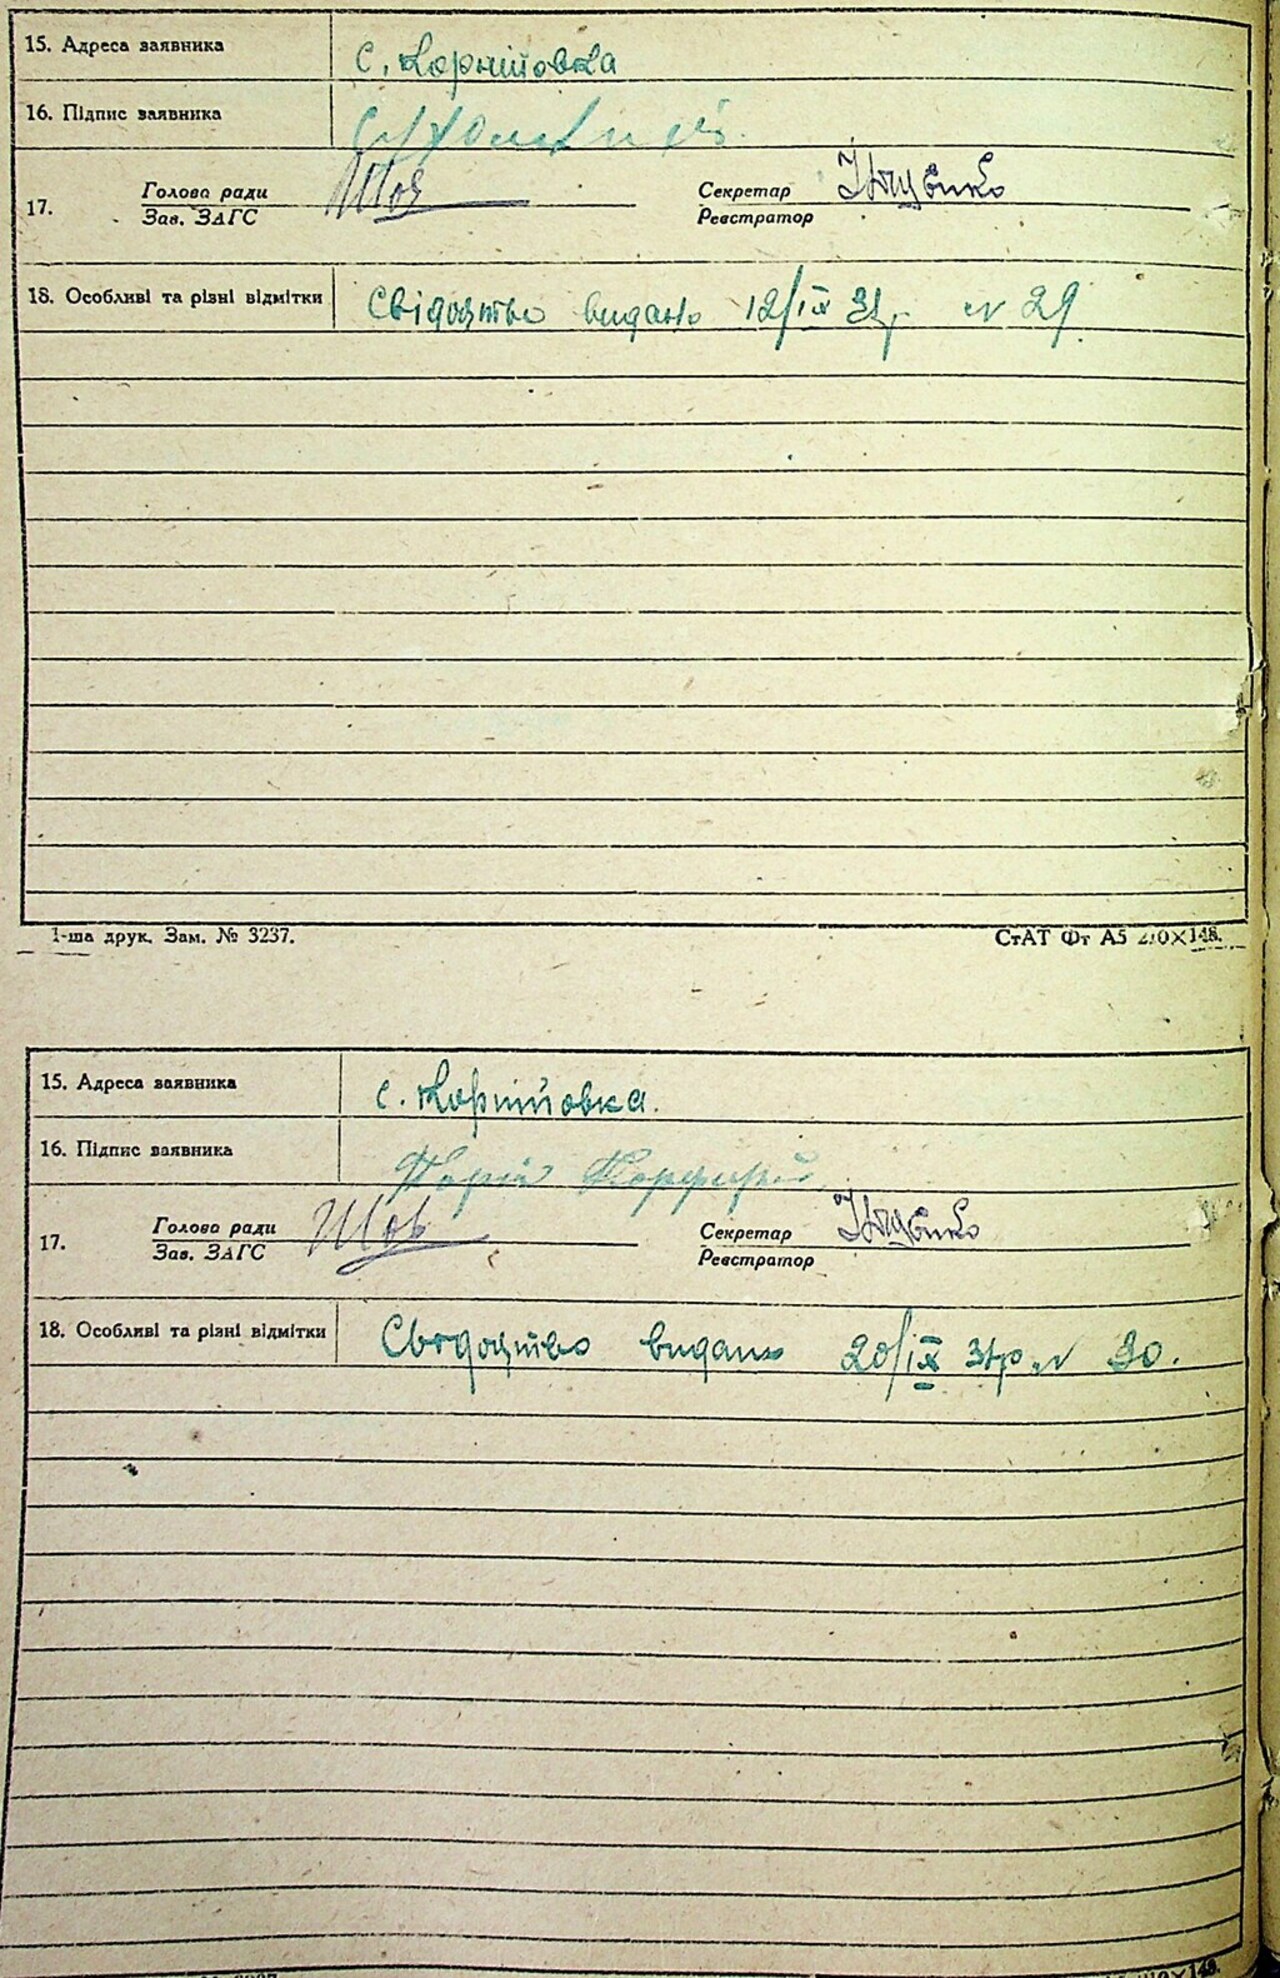 15. Адреса заявника с. Корнійовка
16. Підпис заявника
17. Голова ради Секретар
Зав. ЗАГС Реєстратор
18. Особливі та різні відмітки Свідоцтво видано 12/IX 31р. N 29
1-ша друк. Зам. № 3237. СтАТ Фт А5 210×148.
15. Адреса заявника с. Корнійовка.
16. Підпис заявника
17. Голова ради Секретар
Зав. ЗАГС Реєстратор
18. Особливі та різні відмітки Свідоцтво видано 20/IX 31р. N 30.